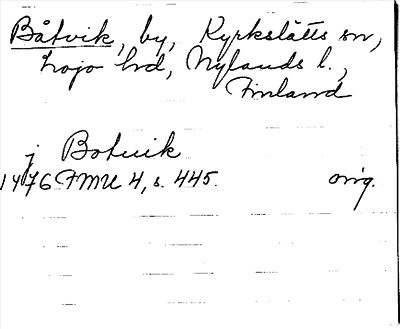 Båtvik, by, Kyrkslätts sn,
Lojo hd, Nylands l.,
Finland
j Botuik
1476 FMU 4, s. 445. orig.